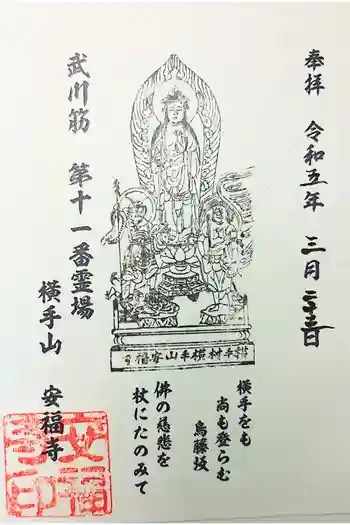 奉拝 令和五年 三月 日
横手をも
尚も登らむ
烏藤坂
佛の慈悲を
杖にたのみて
横手村横手山安福寺
武川筋 第十一番霊場
横手山 安福寺